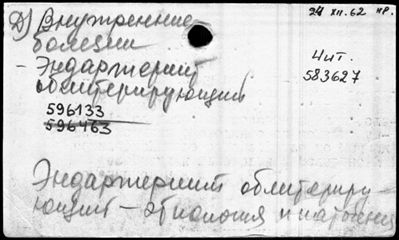 Д) Внутренние
болезни
- Эндартериит
облитерирующий
596133
596463
24 XII.62 нр.
Чит.
583627
Эндартериит облитериру-
ющий - этиология и патогенез